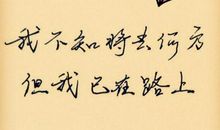 我不知将去何方
但我已在路上